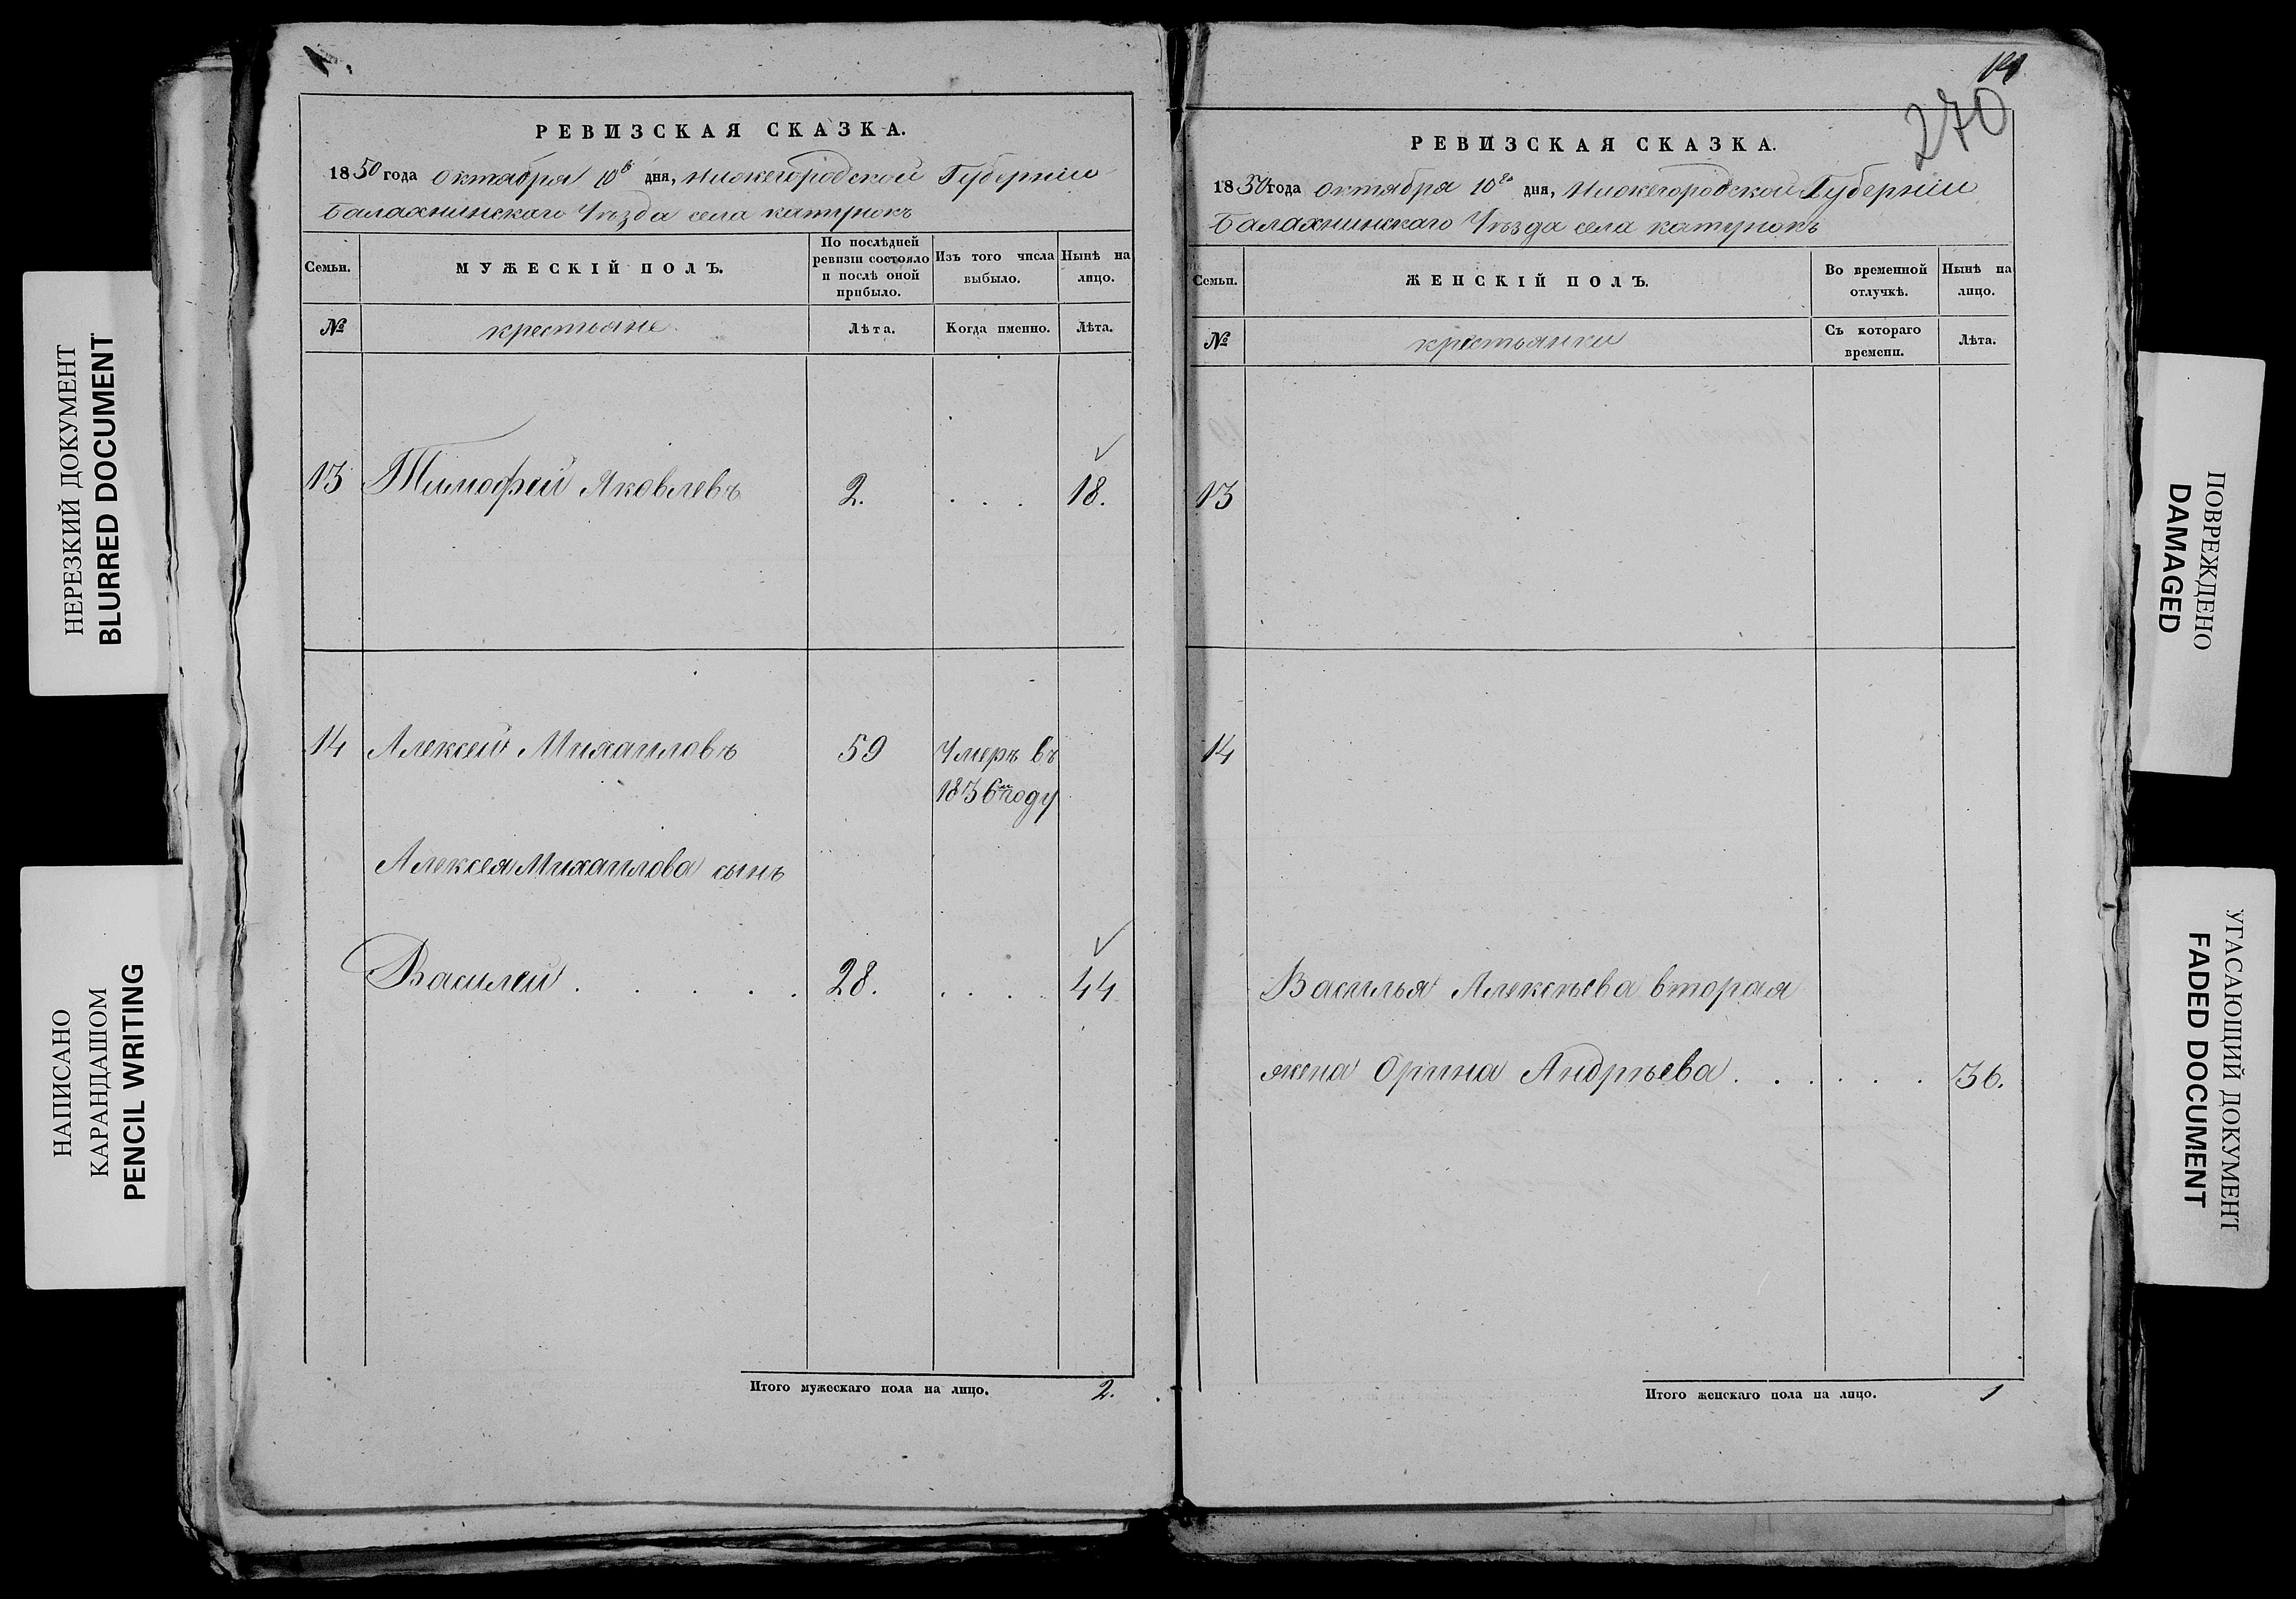 РЕВИЗСКАЯ СКАЗКА.
1850 года октября 10го дня, Нижегородской Губерніи
Балахнинскаго Уѣзда села катунокъ
Семьи.
МУЖЕСКІЙ ПОЛЪ.
По послѣдней ревизіи состояло и послѣ оной прибыло.
Изъ того числа выбыло.
Нынѣ на лицо.
№
крестьяне
Лѣта.
Когда именно.
Лѣта.
13 Тимофей Яковлевъ 2. . . . 18.
14 Алексей Михаиловъ 59 Умеръ въ
1836мъ году
Алексея Михаилова сынъ
Василей . . . . . 28. . . . . 44
Итого мужескаго пола на лицо. 2.
14
270
РЕВИЗСКАЯ СКАЗКА.
1850 года октября 10го дня, Нижегородской Губерніи
Балахнинскаго Уѣзда села катунокъ
Семьи.
ЖЕНСКІЙ ПОЛЪ.
Во временной отлучкѣ.
Нынѣ на лицо.
№
крестьянки
Съ котораго времени.
Лѣта.
13
14
Василья Алексѣева вторая
жена Орина Андрѣева . . . . . . 36.
Итого женскаго пола на лицо. 1
НЕРЕЗКИЙ ДОКУМЕНТ
BLURRED DOCUMENT
НАПИСАНО
КАРАНДАШОМ
PENCIL WRITING
ПОВРЕЖДЕНО
DAMAGED
УГАСАЮЩИЙ ДОКУМЕНТ
FADED DOCUMENT